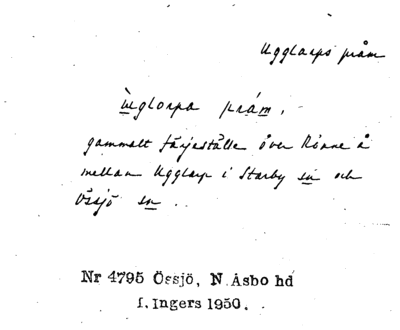 Ugglarps pråm
ùglorpa prám,
gammalt färjeställe över Rönne å
mellan Ugglarp i Starby sn och
Össjö sn ..
Nr 4795 Össjö, N. Åsbo hd
f. Ingers 1950.